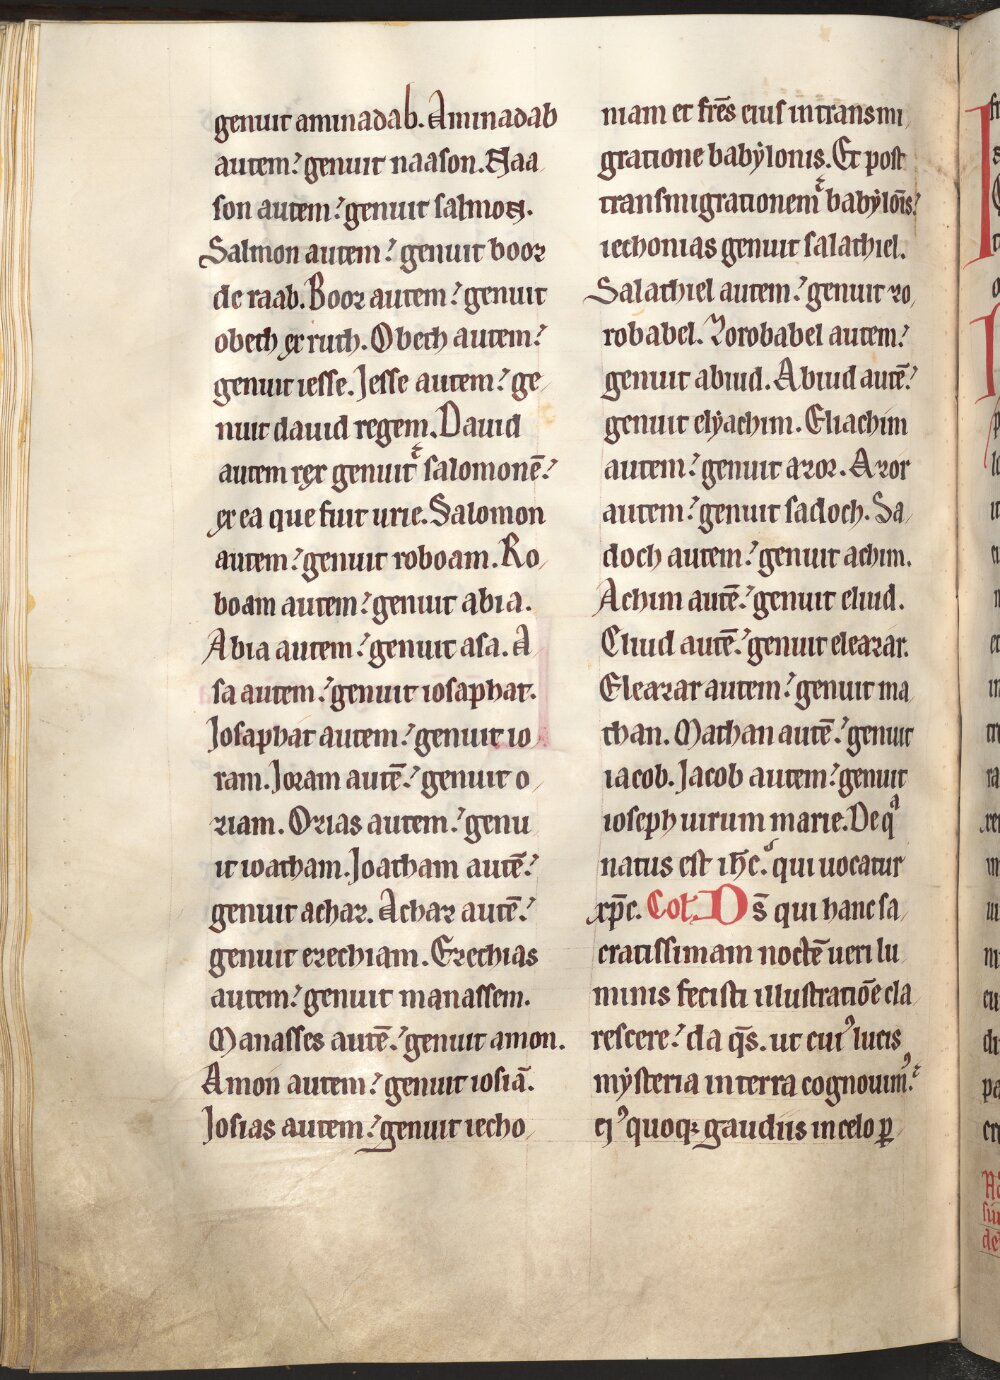 genuit aminadab. Aminadab
autem? genuit naason. Naa
son autem? genuit salmon.
Salmon autem? genuit booz
de raab. Booz autem? genuit
obeth ex ruth. Obeth autem?
genuit iesse. Jesse autem? ge
nuit dauid regem. Dauid
autem rex genuit salomonē?
ex ea que fuit urie. Salomon
autem? genuit roboam. Ro
boam autem? genuit abia.
Abia autem? genuit asa. A
sa autem? genuit iosaphat.
Josaphat autem? genuit io
ram. Joram autē? genuit o
ziam. Ozias autem? genu
it ioatham. Joatham autē?
genuit achaz. Achaz autē?
genuit ezechiam. Ezechias
autem? genuit manassem.
Manasses autē? genuit amon.
Amon autem? genuit iosiā.
Josias autem? genuit iecho
niam et fr̄es eius in transmi
gratione babẏlonis. Et post
transmigrationem babẏlōis?
iechonias genuit salathiel.
Salathiel autem? genuit zo
robabel. Zorobabel autem?
genuit abiud. Abiud autē?
genuit elẏachim. Eliachim
autem? genuit azor. Azor
autem? genuit sadoch. Sa
doch autem? genuit achim.
Achim autē? genuit eliud.
Eliud autē? genuit eleazar.
Eleazar autem? genuit ma
than. Mathan autē? genuit
iacob. Jacob autem? genuit
ioseph uirum marie. De qͣ
natus est ih̄c. qui uocatur
xp̄c. Coł. Ds̄ qui hanc sa
cratissimam noctē ueri lu
minis fecisti illustratiōe cla
rescere? da qs̄. ut cuiꝰ lucis
mẏsteria in terra cognouimꝰ.
eiꝰ quoqꝫ gaudiis in celo ꝑ